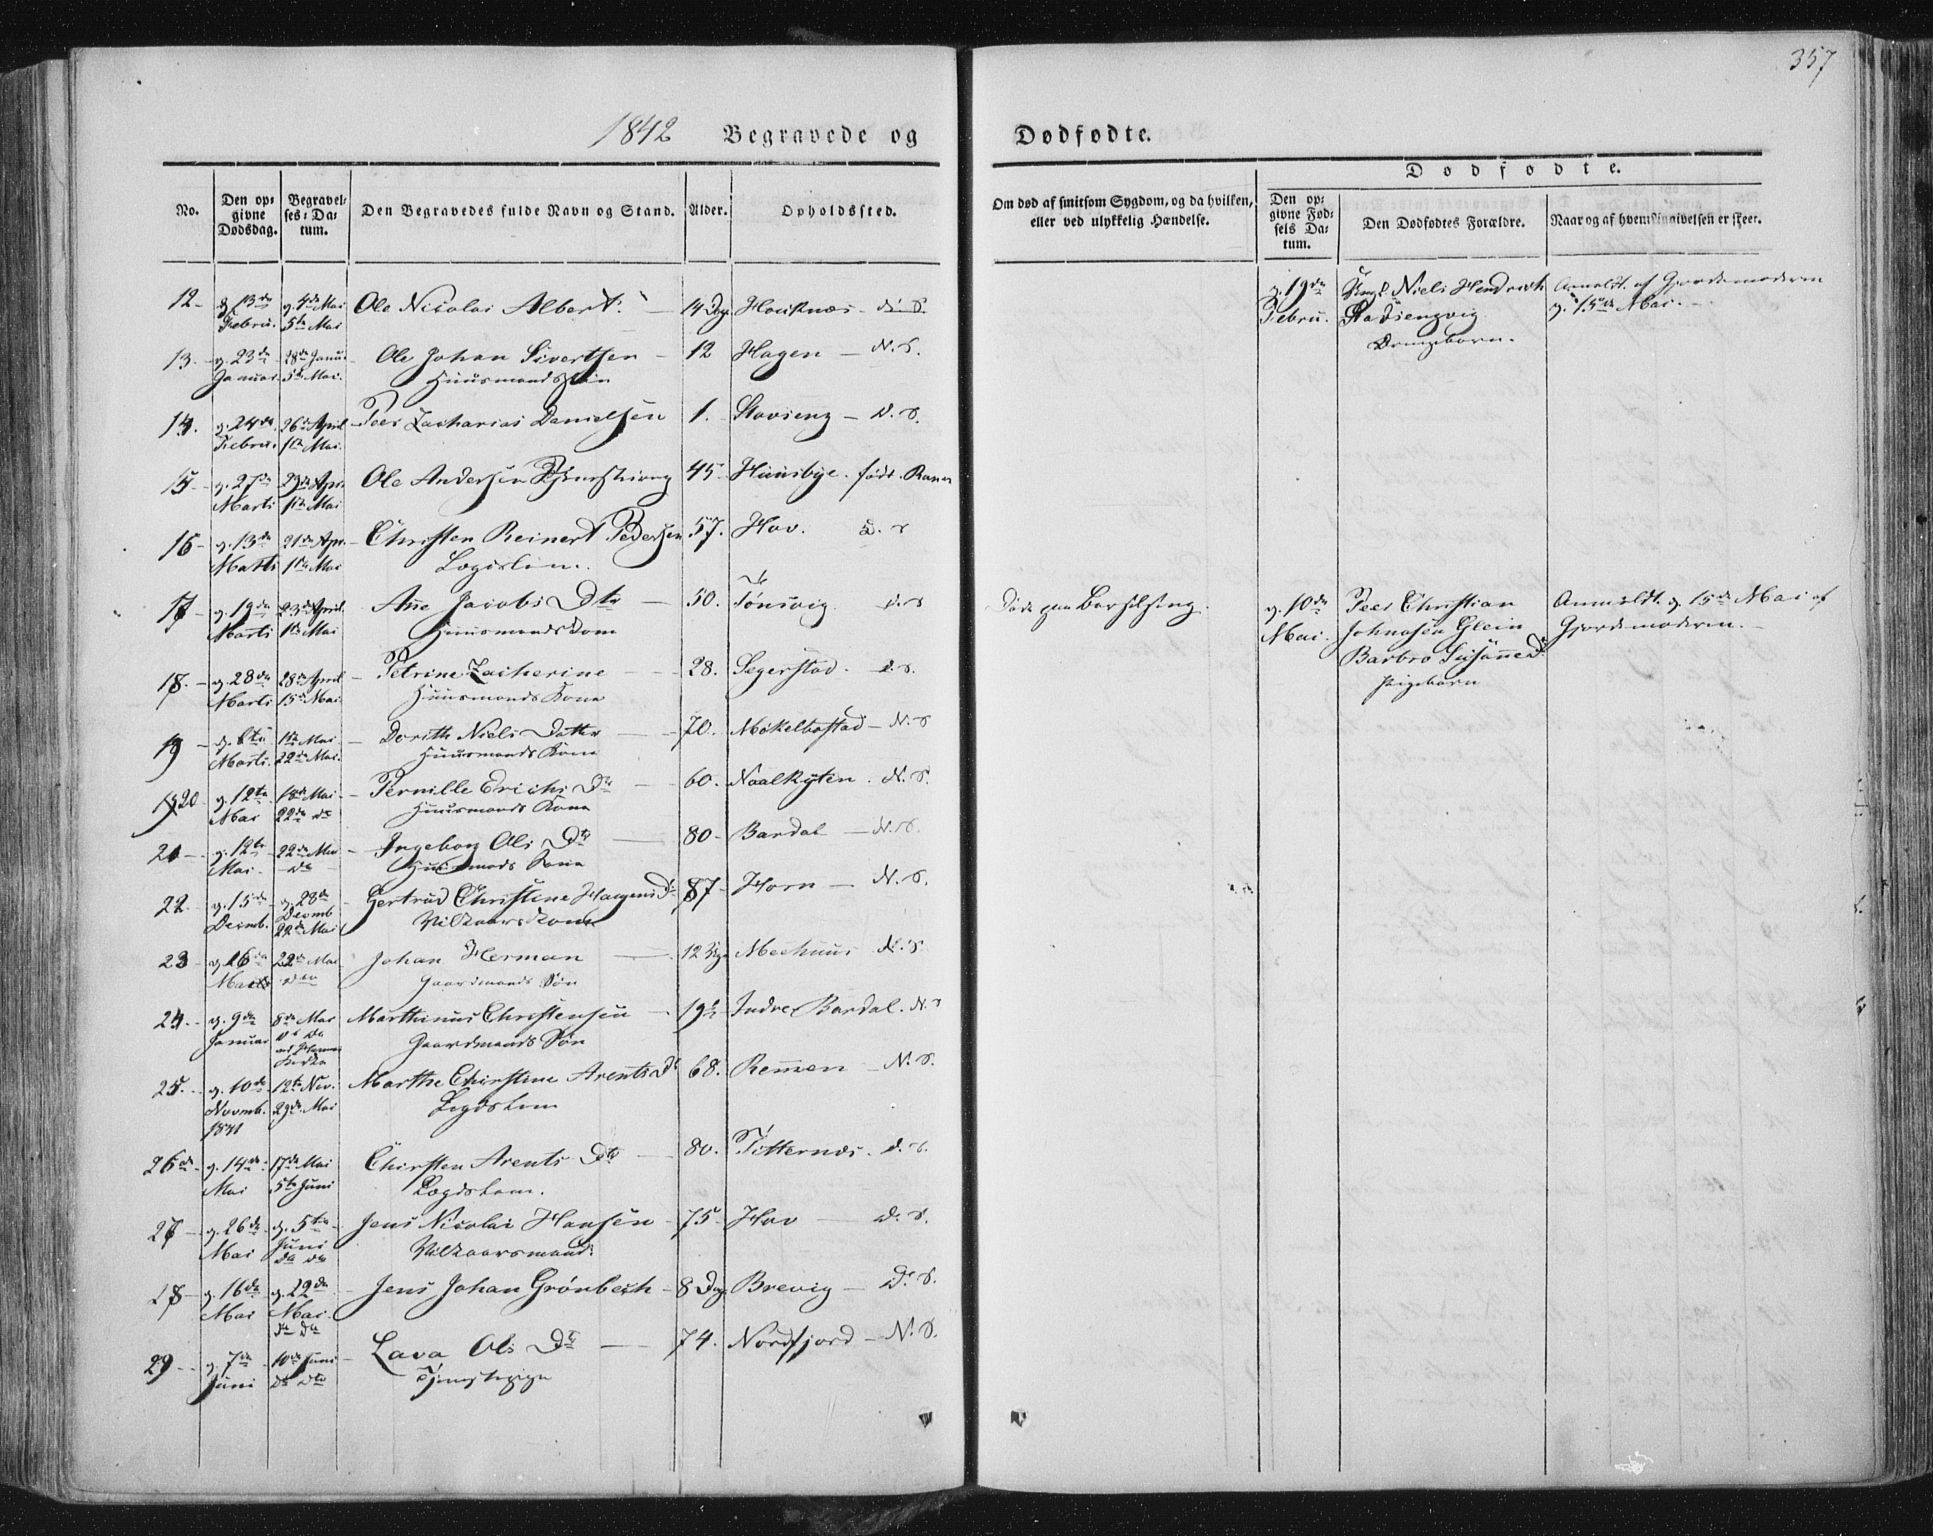 357
1842 Begravede og Dødfødte.
No.
Den opgivne Dødsdag.
Begravelses-Datum.
Den Begravedes fulde Navn og Stand.
Alder.
Opholdssted.
Om død af smitsom Sygdom, og da hvilken, eller ved ulykkelig Hændelse.
Dødfødte.
Den opgivne Fødsels Datum.
Den Dødfødtes Forældre.
Naar og af hvem Angivelsen er skeet.
12 d. 13de 4de Mai Ole Nicolai Albert. 14 Dg. N. S.
Febru. 5te Mai
13. d. 23de 28de Janu. Ole Johan Sivertsen 12 Hagen N. S.
Januar 5te Mai. Huusmandssøn
14. d. 24de 26de April Peer Zacharias Danielsen 1. Stavseng D. S.
Febru. 1te Mai.
15 d. 27de 29de Apr. Ole Andersen 45 Huusbye. født Ranen
Marti 1te Mai
16 d. 13de 21de Apr. Christen Reinert Pedersen 57. Hov. D. S
Marti 1te Mai Lægdslem.
17 d. 19de 23de April Ane Jacobs Dtr 50. Tønsvig D. S
Marti 1te Mai Huusmands Kone
18. d. 28de 28de April Petrine Zacherine 28. Segerstad. D. S.
Marti 15de Mai Huusmands Kone
19 d. 8te 1te Mai Dorith Niels Datter 70. Møkelbostad N. S
Marti. 22de Mai. Huusmands Kone
20 d. 12te 18de Mai Pernille Erichs Dr 60. Naalkyten. N. S.
Mai 22de do Huusmands Kone
21 d. 12te 22de Mai Ingeborg Ols Dtr 80 Bardal N. S.
Mai. do Huusmands Kone
22 d. 15de d. 28de Gertrud Christine Hagens Dr 87 Horn N. S.
Decmb. Decmb 22de Mai Vilkaarskone
23 d. 26de 22de Mai Johan Herman 12 Dg. Meehuus N. S.
Marts Gaardmands Søn
24 d. 9de 8de Mai Marthinus Christensen 19½ Indre Bardal. N. S
Januar Gaardmands Søn
25. d. 10de 12te Nov. Marthe Christine Arents Dr 68. Remmen N. S.
Novmb. 29de Mai Lægdslem
1841
26de d. 14de 17de Mai Chirsten Arents Dtr 80. Titternes. D. S.
Mai 5te Juni Lægdslem.
27 d. 26de d. 5te Jens Nicolai Hansen 75 Hov D. S.
Mai Juni Vilkaarsmand.
do do
28 d. 16de d. 22de Jens Johan Grønbech 8 Dg. Brevig D. S.
Mai Mai.
do do
29 d. 7de 10de Juni Lava Ols Dtr 74. Nordfjord N. S.
Juni do do Tjenestepige
d. 19de Niels Hendrich Anmeldt af Gjordemoderen
Febru. d. 15de Mai.
Drengebarn.
Døde paa Barselseng.
d. 10de Peer Christian Anmeldt d. 15de Mai af
Mai. Johnasen Glein Gjordemoderen.
Barbro Susanne Dr
Pigebarn